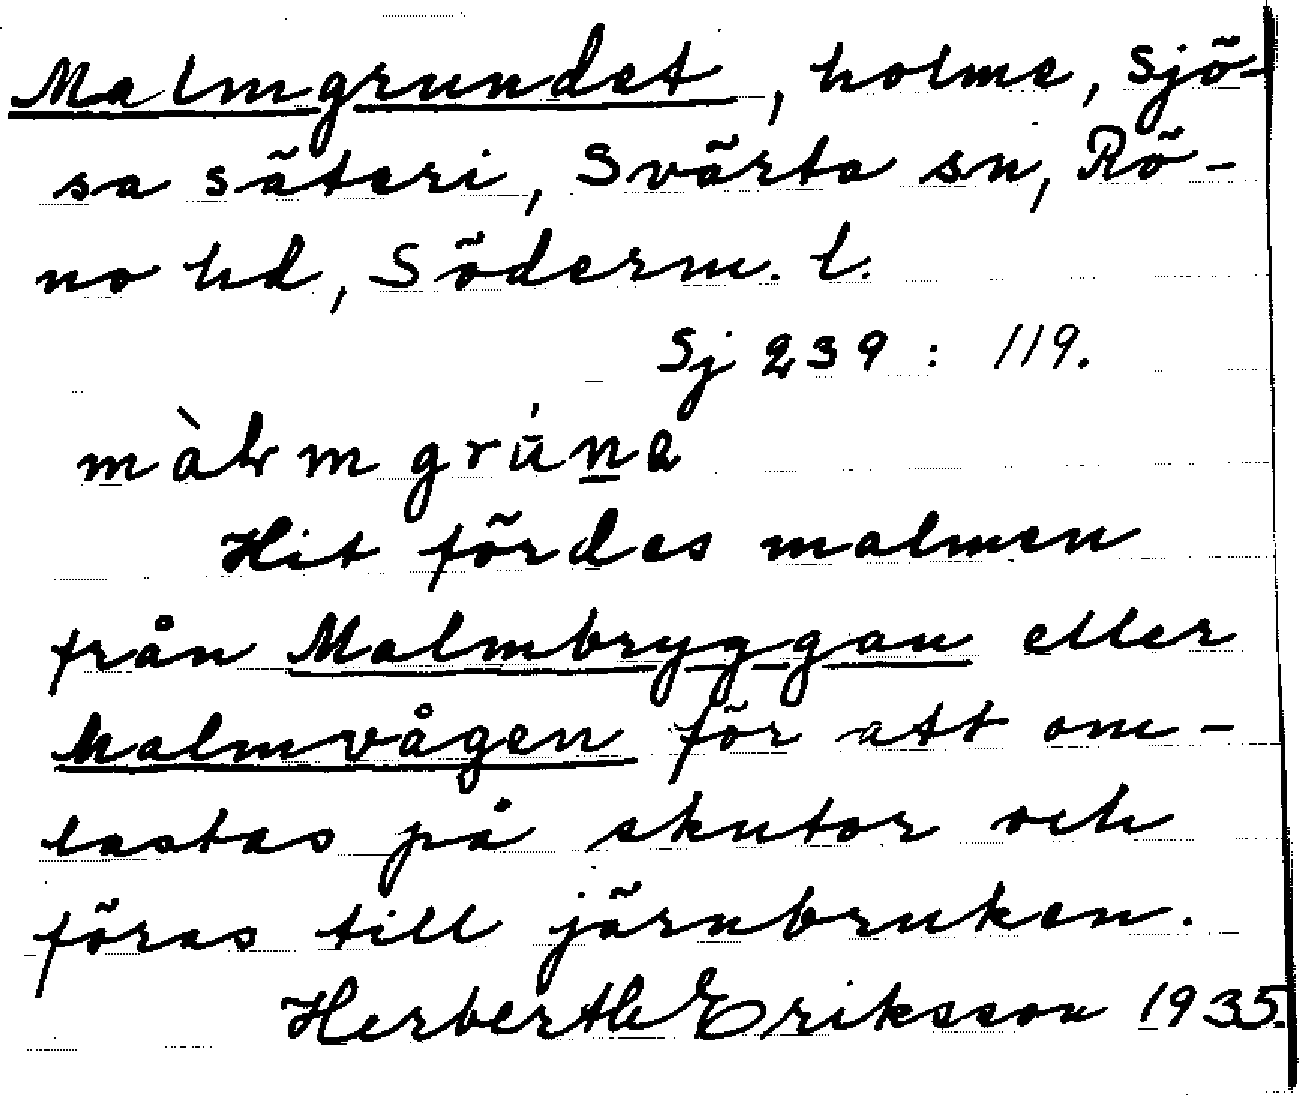 Malmgrundet, holme, Sjö-
sa säteri, Svärta sn, Rö-
no hd, Söderm. l.
Sj 239 : 119.
màlmgrú̄n̲e
Hit fördes malmen
från Malmbryggan eller
Malmvågen för att om-
lastas på skutor och
föras till järnbruken.
Herberth Eriksson 1935.